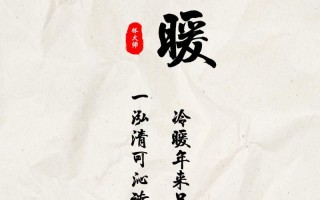 暖
林大师
冷暖年来
一泓清可沁